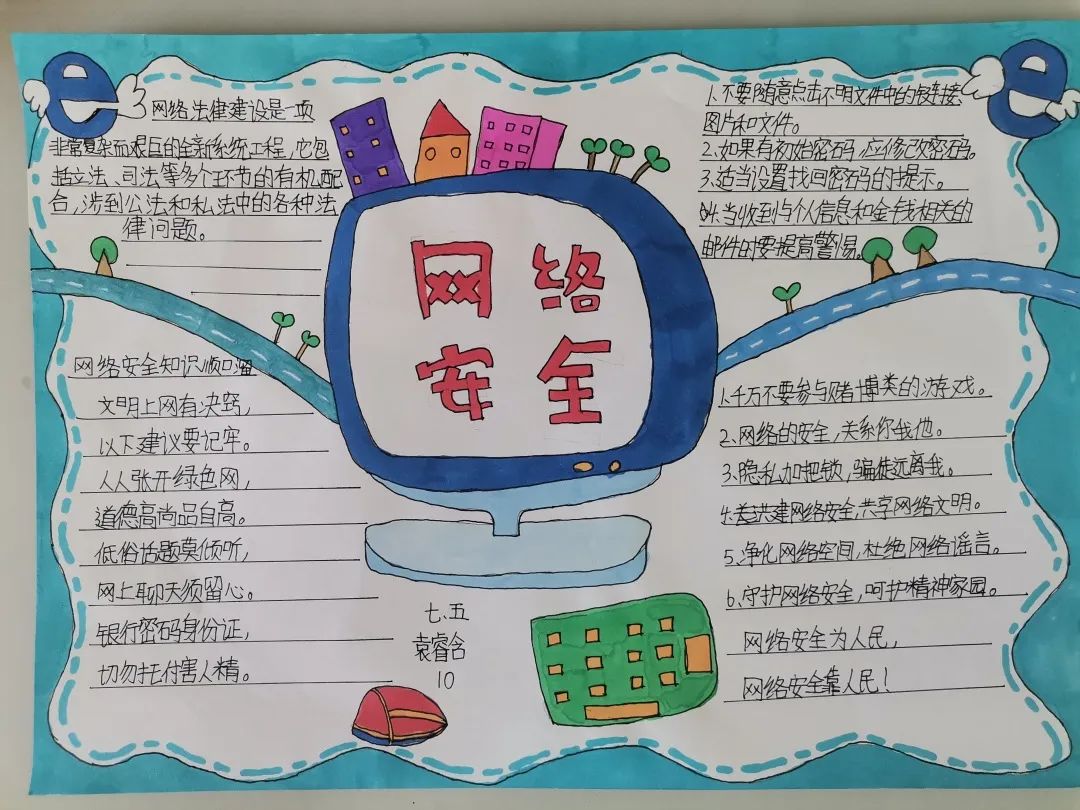 网络法律建设是一项
非常复杂而艰巨的全新系统工程，它包
括立法、司法等多个环节的有机配
合，涉到公法和私法中的各种法
律问题。
网络
安全
1.不要随意点击不明文件中的链接、
图片和文件。
2.如果有初始密码，应修改密码。
3.适当设置找回密码的提示。
4.当收到与个人信息和金钱相关的
邮件时要提高警惕。
网络安全知识顺口溜
文明上网有决窍，
以下建议要记牢。
人人张开绿色网，
道德高尚品自高。
低俗话题莫倾听，
网上聊天须留心。
银行密码身份证，
切勿托付害人精。
七、五
袁睿含
10
1.千万不要参与赌博类的游戏。
2.网络的安全，关系你我他。
3.隐私加把锁，骗徒远离我。
4.共建网络安全，共享网络文明。
5.净化网络空间，杜绝网络谣言。
6.守护网络安全，呵护精神家园。
网络安全为人民，
网络安全靠人民！